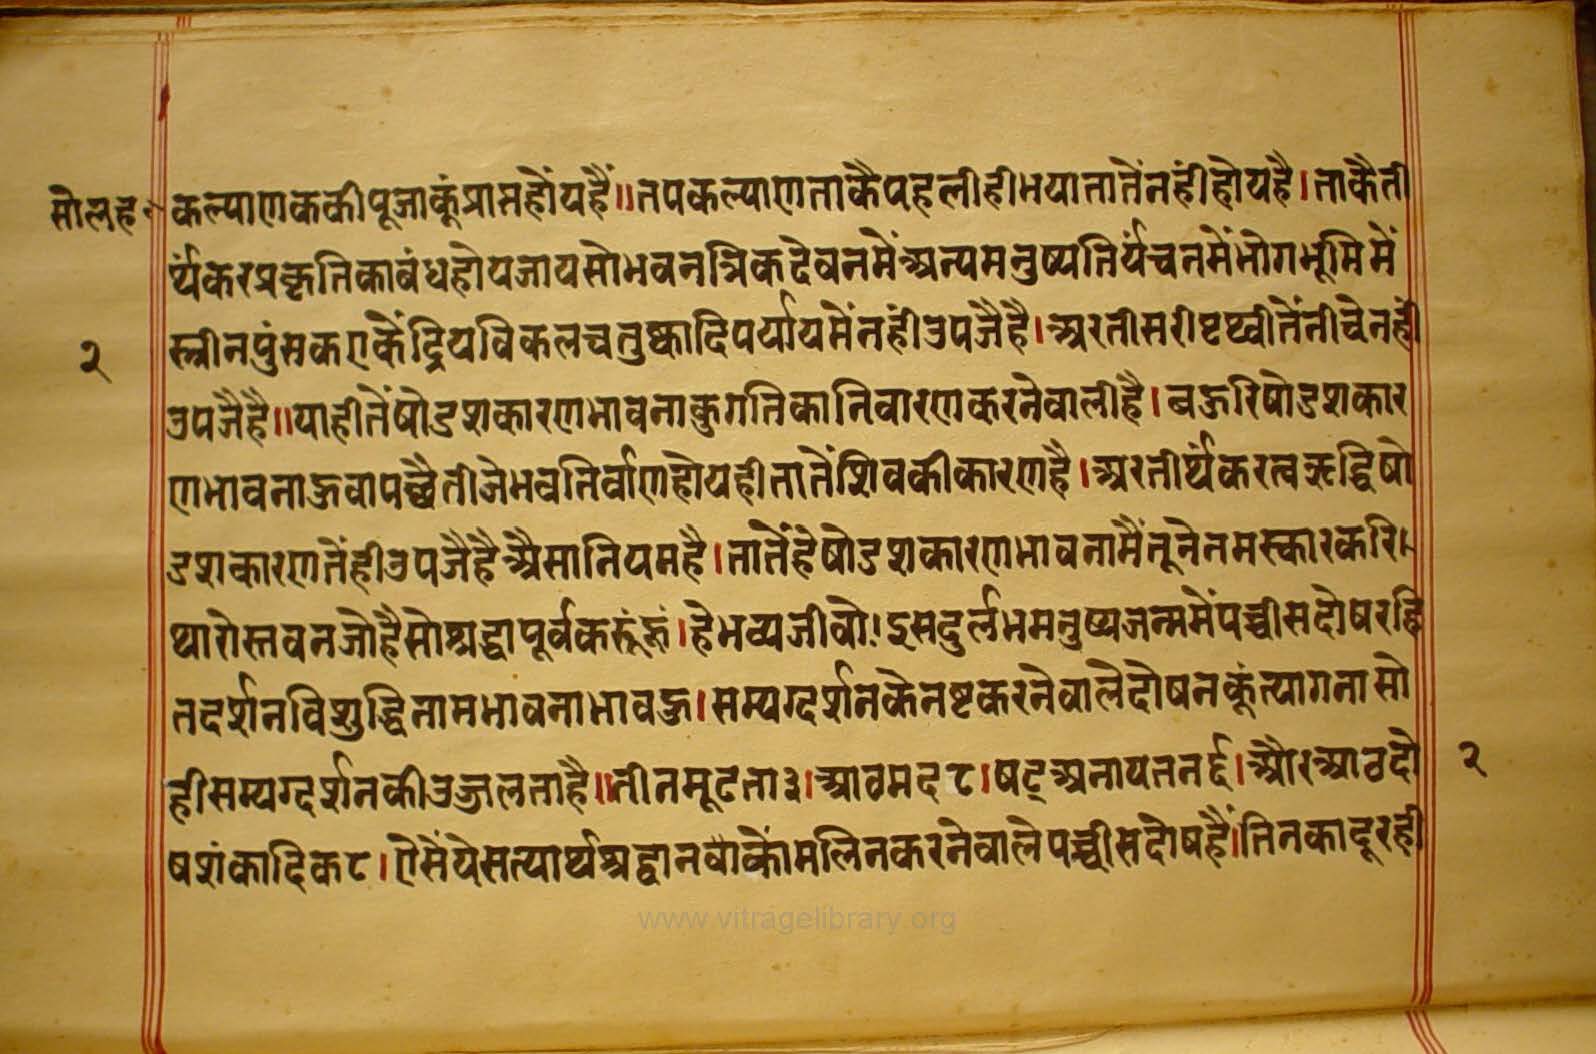 सोलह कल्याणककीपूजाकूंप्राप्तहोंयहैं॥तपकल्याणताकैपहलीहीभयातातेंनहींहोयहै।ताकैती
र्यंकरप्रकृतिकाबंधहोयजायसोभवनत्रिकदेवनमेंअन्यमनुष्यतिर्यंचनमेंभोगभूमिमें
स्त्रीनपुंसकएकेंद्रियविकलचतुष्कादिपर्यायमेंनहींउपजैहै।अरतीसरीपृथ्वीतेंनीचेनहीं
२
उपजैहै॥याहीतेंषोडशकारणभावनाकुगतिकानिवारणकरनेवालीहै।बहुरिषोडशकार
णभावनाहुवापछैतीजेभवनिर्वाणहोयहीतातेंशिवकीकारणहै।अरतीर्थंकरत्वऋद्धिषो
डशकारणतेंहीउपजैहैअैसानियमहै।तातेंहेषोडशकारणभावनामैंतूनेनमस्कारकरि।
थारोस्तवनजोहैसोश्रद्धापूर्वककरूंहूं।हेभव्यजीवो!इसदुर्लभमनुष्यजन्ममेंपच्चीसदोषरहि
तदर्शनविशुद्धिनामभावनाभावहु।सम्यग्दर्शनकेनष्टकरनेवालेदोषनकूंत्यागनासो
हीसम्यग्दर्शनकीउज्जलताहै॥तीनमूढता३।आठमद८।षट्अनायतन६।औरआठदो
२
षशंकादिक८।ऐसेंयेसत्यार्थश्रद्धानवाकोंमलिनकरनेवालेपच्चीसदोषहैं।तिनकादूरही
www.vitragelibrary.org